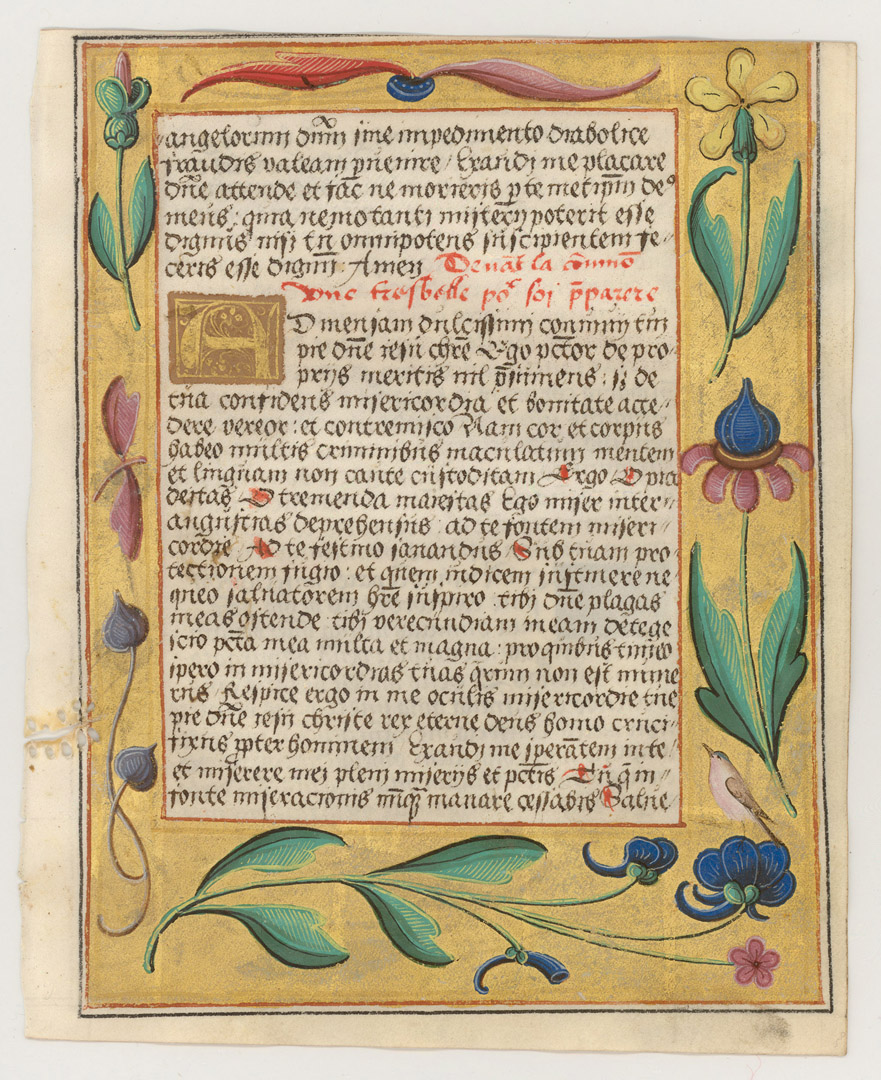 angelorum dnm sine impedimento diabolice
fraudis valeam pvenire / Exaudi me placare
dne attende et fac ne morieris p te metipm de⁹
meus : quia nemo tanti misterij poterit esse
dignus nisi tu omnipotens suscipientem fe-
ceris esse dignum : Amen Devāt la cōmuō
une tresbelle po᷑ soi p̄parere
AD mensam dulcissimi convivij tui
pie dn̄e iesu chr̄e Ego pctor de pro-
prijs meritis nil p̄sumens : sȝ de
tua confidens misericordia et bonitate acce-
dere vereor : et contremisco Nam cor et corpus
habeo multis criminibus maculatum mentem
et linguam non caute custoditam Ergo O pia
deitas O tremenda maiestas Ego miser inter
angustias deprehensus : ad te fontem miseri-
cordie Ad te festino sanandus Sub tuam pro-
tectionem fugio : et quem iudicem sustinere ne
queo salvatorem hr̄e suspiro : tibi dn̄e plagas
meas ostende tibi verecundiam meam detege
scio pctā mea multa et magna : pro quibus timeo
spero in misericordias tuas q̄rum non est nume
rus / Respice ergo in me oculis misericordie tue
pie dn̄e iesu christe rex eterne deus homo cruci-
fixus ppter hominem Exaudi me sperātem in te
et miserere mei pleni miserijs et pctīs Tu q̄ m-
fonte miseracionis nūq̄ȝ manare cessabis Salve